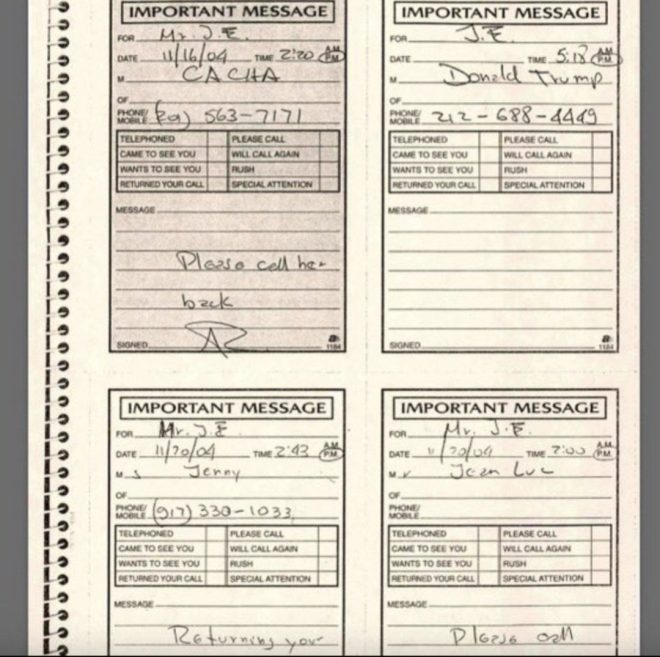 IMPORTANT MESSAGE
FOR Mr. J.E.
DATE 11/16/04 TIME 2:20 A.M. P.M.
M CACHA
OF
PHONE/ MOBILE 563-7171
TELEPHONED PLEASE CALL
CAME TO SEE YOU WILL CALL AGAIN
WANTS TO SEE YOU RUSH
RETURNED YOUR CALL SPECIAL ATTENTION
MESSAGE
Please call her
back
SIGNED
1184
IMPORTANT MESSAGE
FOR J.E.
DATE TIME 5:18 A.M. P.M.
M Donald Trump
OF
PHONE/ MOBILE 212-688-4449
TELEPHONED PLEASE CALL
CAME TO SEE YOU WILL CALL AGAIN
WANTS TO SEE YOU RUSH
RETURNED YOUR CALL SPECIAL ATTENTION
MESSAGE
SIGNED
1184
IMPORTANT MESSAGE
FOR Mr. J.E
DATE 11/20/04 TIME 2:43 A.M. P.M.
M s Jenny
OF
PHONE/ MOBILE (917) 330-1033
TELEPHONED PLEASE CALL
CAME TO SEE YOU WILL CALL AGAIN
WANTS TO SEE YOU RUSH
RETURNED YOUR CALL SPECIAL ATTENTION
MESSAGE
Returning your
IMPORTANT MESSAGE
FOR Mr. J.E.
DATE 11/20/04 TIME 7:00 A.M. P.M.
M r Jean Luc
OF
PHONE/ MOBILE
TELEPHONED PLEASE CALL
CAME TO SEE YOU WILL CALL AGAIN
WANTS TO SEE YOU RUSH
RETURNED YOUR CALL SPECIAL ATTENTION
MESSAGE
Please call